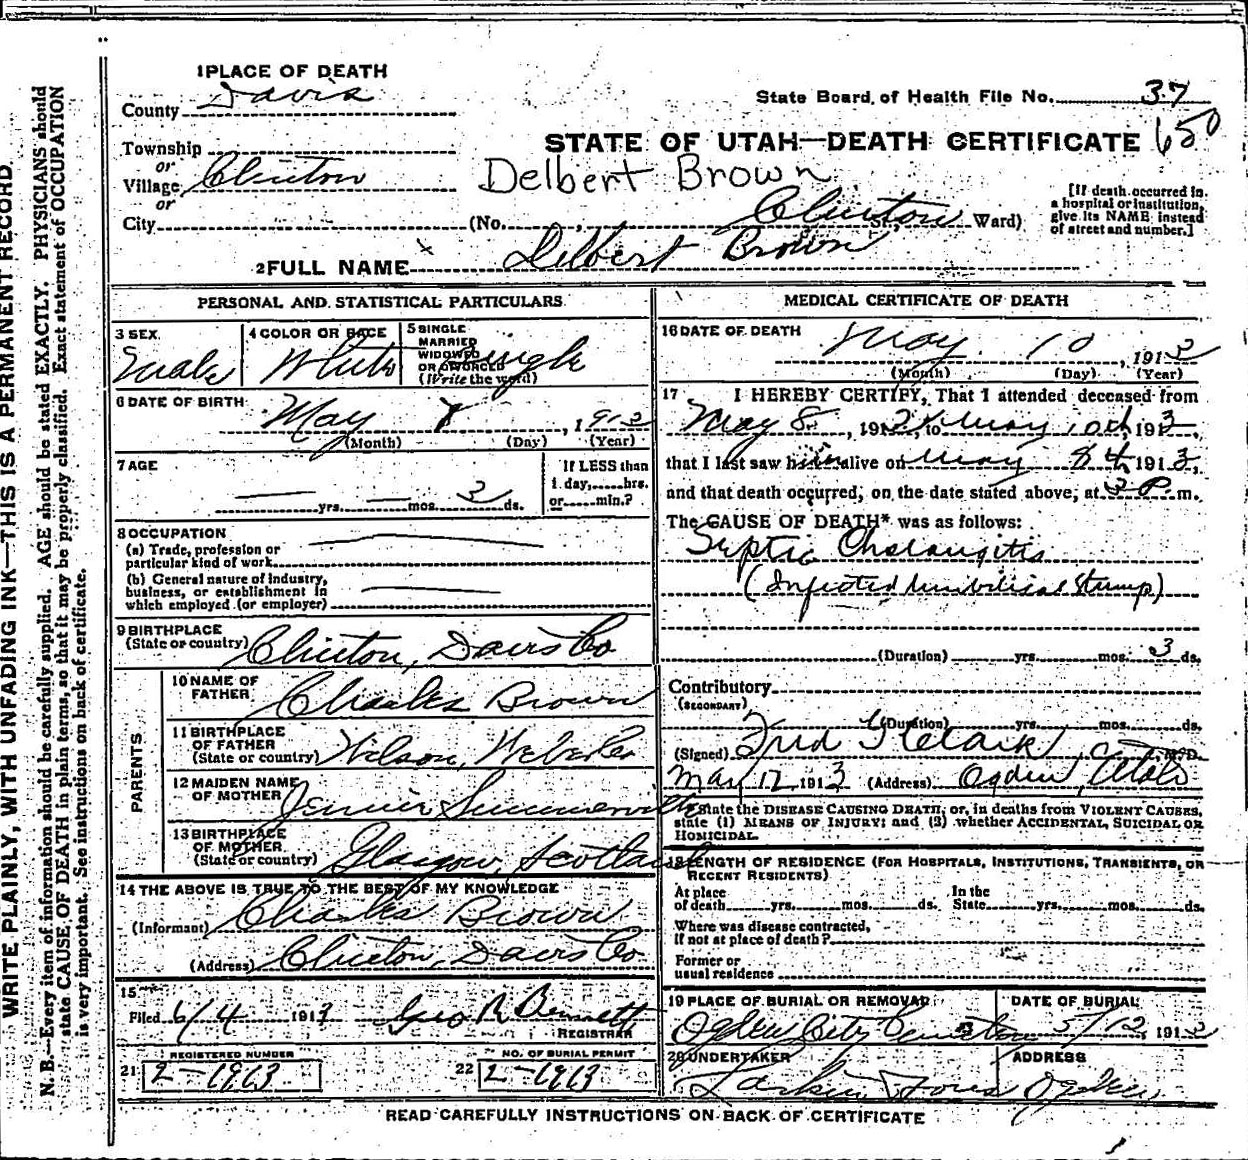 WRITE PLAINLY, WITH UNFADING INK—THIS IS A PERMANENT RECORD.
N. B.—Every item of information should be carefully supplied. AGE should be stated EXACTLY. PHYSICIANS should
state CAUSE OF DEATH in plain terms, so that it may be properly classified. Exact statement of OCCUPATION
is very important. See instructions on back of certificate.
1 PLACE OF DEATH
County Davis
State Board of Health File No. 37
STATE OF UTAH—DEATH CERTIFICATE 650
Township
or
Village Clinton
Delbert Brown
or
City (No. , Clinton St., Ward)
[If death occurred in
a hospital or institution,
give its NAME instead
of street and number.]
2 FULL NAME Delbert Brown
PERSONAL AND STATISTICAL PARTICULARS
3 SEX
Male
4 COLOR OR RACE
White
5 SINGLE
MARRIED
WIDOWED
OR DIVORCED
(Write the word)
Single
6 DATE OF BIRTH
May , 1913
(Month) (Day) (Year)
7 AGE
— yrs. — mos. 3 ds.
If LESS than
1 day, hrs.
or min.?
8 OCCUPATION
(a) Trade, profession or
particular kind of work
(b) General nature of industry,
business, or establishment in
which employed (or employer)
9 BIRTHPLACE
(State or country) Clinton, Davis Co
PARENTS
10 NAME OF
FATHER Charles Brown
11 BIRTHPLACE
OF FATHER
(State or country) Wilson, Weber Co
12 MAIDEN NAME
OF MOTHER Jennie Summerville
13 BIRTHPLACE
OF MOTHER
(State or country) Glasgow, Scotland
14 THE ABOVE IS TRUE TO THE BEST OF MY KNOWLEDGE
(Informant) Charles Brown
(Address) Clinton, Davis Co
15
Filed 6/4 1913 Geo R Bennett
REGISTRAR
REGISTERED NUMBER
21 2-1913
NO. OF BURIAL PERMIT
22 2-1913
MEDICAL CERTIFICATE OF DEATH
16 DATE OF DEATH
May 10 , 1913
(Month) (Day) (Year)
17 I HEREBY CERTIFY, That I attended deceased from
May 8 , 191 , to May 10th, 1913,
that I last saw him alive on May 8th 1913,
and that death occurred, on the date stated above, at 3 P. m.
The CAUSE OF DEATH* was as follows:
Septic Cholangitis
(Infected Umbilical Stump)
(Duration) yrs. mos. 3 ds.
Contributory
(SECONDARY)
(Duration) yrs. mos. ds.
(Signed) Fred Clark , M.D.
May 12 1913 (Address) Ogden, Utah
* State the DISEASE CAUSING DEATH, or, in deaths from VIOLENT CAUSES,
state (1) MEANS OF INJURY; and (2) whether ACCIDENTAL, SUICIDAL OR
HOMICIDAL.
18 LENGTH OF RESIDENCE (FOR HOSPITALS, INSTITUTIONS, TRANSIENTS, OR
RECENT RESIDENTS)
At place
of death yrs. mos. ds.
In the
State yrs. mos. ds.
Where was disease contracted,
if not at place of death?
Former or
usual residence
19 PLACE OF BURIAL OR REMOVAL
Ogden City Cemetery
DATE OF BURIAL
5/12, 1913
20 UNDERTAKER
Larkin & Sons
ADDRESS
Ogden
READ CAREFULLY INSTRUCTIONS ON BACK OF CERTIFICATE